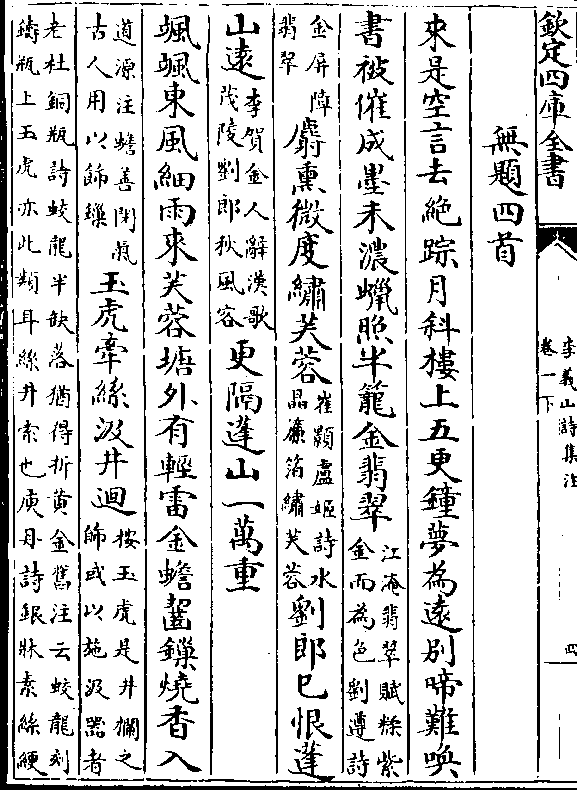 欽定四庫全書
李義山詩集注
卷一下
四
無題四首
來是空言去絶踪月科樓上五更鐘夢為遠别啼難喚
書被催成墨未濃蠟照半籠金翡翠
江淹翡翠賦糅紫
金而為色劉遵詩
金屏障
翡翠
麝熏微度繡芙蓉
崔顥盧姬詩水
晶簾箔繡芙蓉
劉郎已恨蓬
山遠
李賀金人辭漢歌
茂陵劉郎秋風客
更隔蓬山一萬重
颯颯東風細雨來芙蓉塘外有輕雷金蟾齧鏁燒香入
道源注蟾善閉氣
古人用以飾鏁
玉虎牽絲汲井迴
按玉虎是井欄之
飾或以施汲器者
老杜銅瓶詩蛟龍半缺落猶得折黄金舊注云蛟龍刻
鑄瓶上玉虎亦此類耳絲井索也庾丹詩銀牀素絲綆